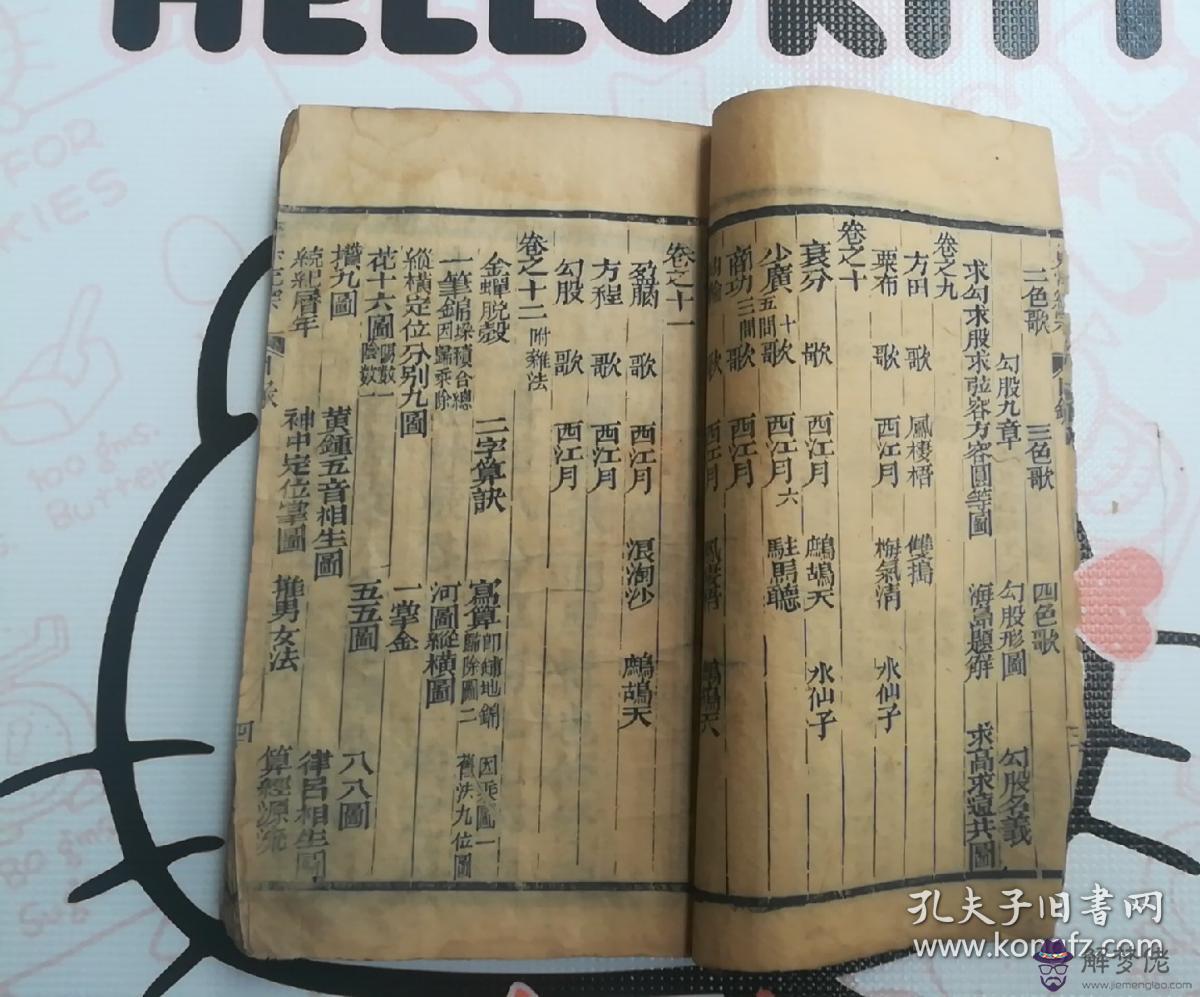 HELLO KITTY
二色歌 三色歌 四色歌
勾股九章 勾股形圖 勾股名義
求勾求股求弦容方容圓等圖 海島題解 求高求遠共圖
卷之九
方田 歌 鳳棲梧 雙搗
粟布 歌 西江月 梅氣清 水仙子
卷之十
衰分 歌 西江月 鷓鴣天 水仙子
少廣五問 十歌 西江月六 駐馬聽
商功三問 歌 西江月
歌 西江月 鷓鴣天
卷之十一
盈朒 歌 西江月 浪淘沙 鷓鴣天
方程 歌 西江月
勾股 歌 西江月
卷之十二附雜法
金蟬脫殼 二字算訣 寫算即鋪地錦歸除圖二 因乘圖一舊法九位圖
一筆錦肩垜積合總因歸乘除
縱橫定位分別九圖 一掌金 河圖縱橫圖
花十六圖陽數一陰數一 五五圖 八八圖
攢九圖 黃鍾五音相生圖 律呂相生圖
統紀曆年 神中定位掌圖 推男女法 算經源流
四
FOR
KIES
100 gms.
Butter
80 gms
Sug
孔夫子旧书网
www.kongfz.com
解梦佬
www.jiemenglao.com